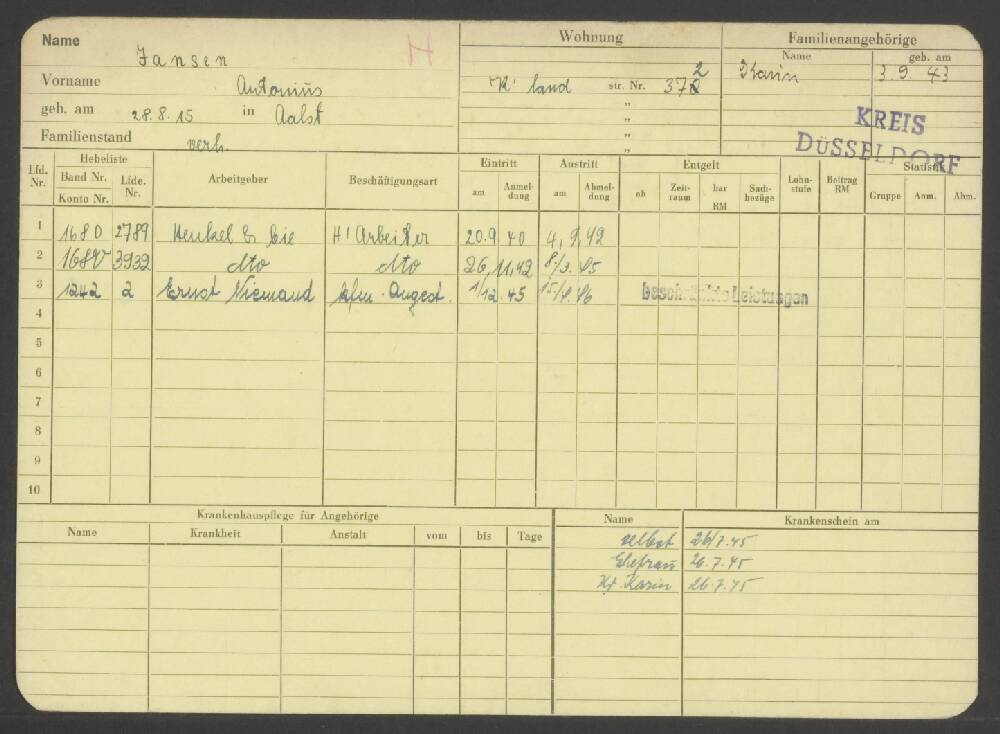 Name Jansen H
Vorname Antonius
geh. am 28.8.15 in Aalst
Familienstand verh.
Wohnung
str. Nr. 372
"
"
"
"
Familienangehörige
Name geb. am
Karin 3.9.43
KREIS
DÜSSELDORF
Lfd. Nr. Hebeliste Arbeitgeber Beschäftigungsart Eintritt Austritt Entgelt Lohnstufe Beitrag RM Statistik
Band Nr. Konto Nr. Lfde. Nr. am Anmeldung am Abmeldung ob Zeitraum bar RM Sachbezüge Gruppe Anm. Abm.
1 1680 2789 Henkel & Cie H'Arbeiter 20.9.40 4.9.42
2 3932 dto dto 26.11.42 8./3.45
3 1242 2 Ernst Niemand Angest. 1/12.45 15/4.46 beschränkte Leistungen
4
5
6
7
8
9
10
Krankenhauspflege für Angehörige
Name Krankheit Anstalt vom bis Tage
Name Krankenschein am
selbst 26/7.45
Ehefrau 26.7.45
Kd. Karin 26.7.45